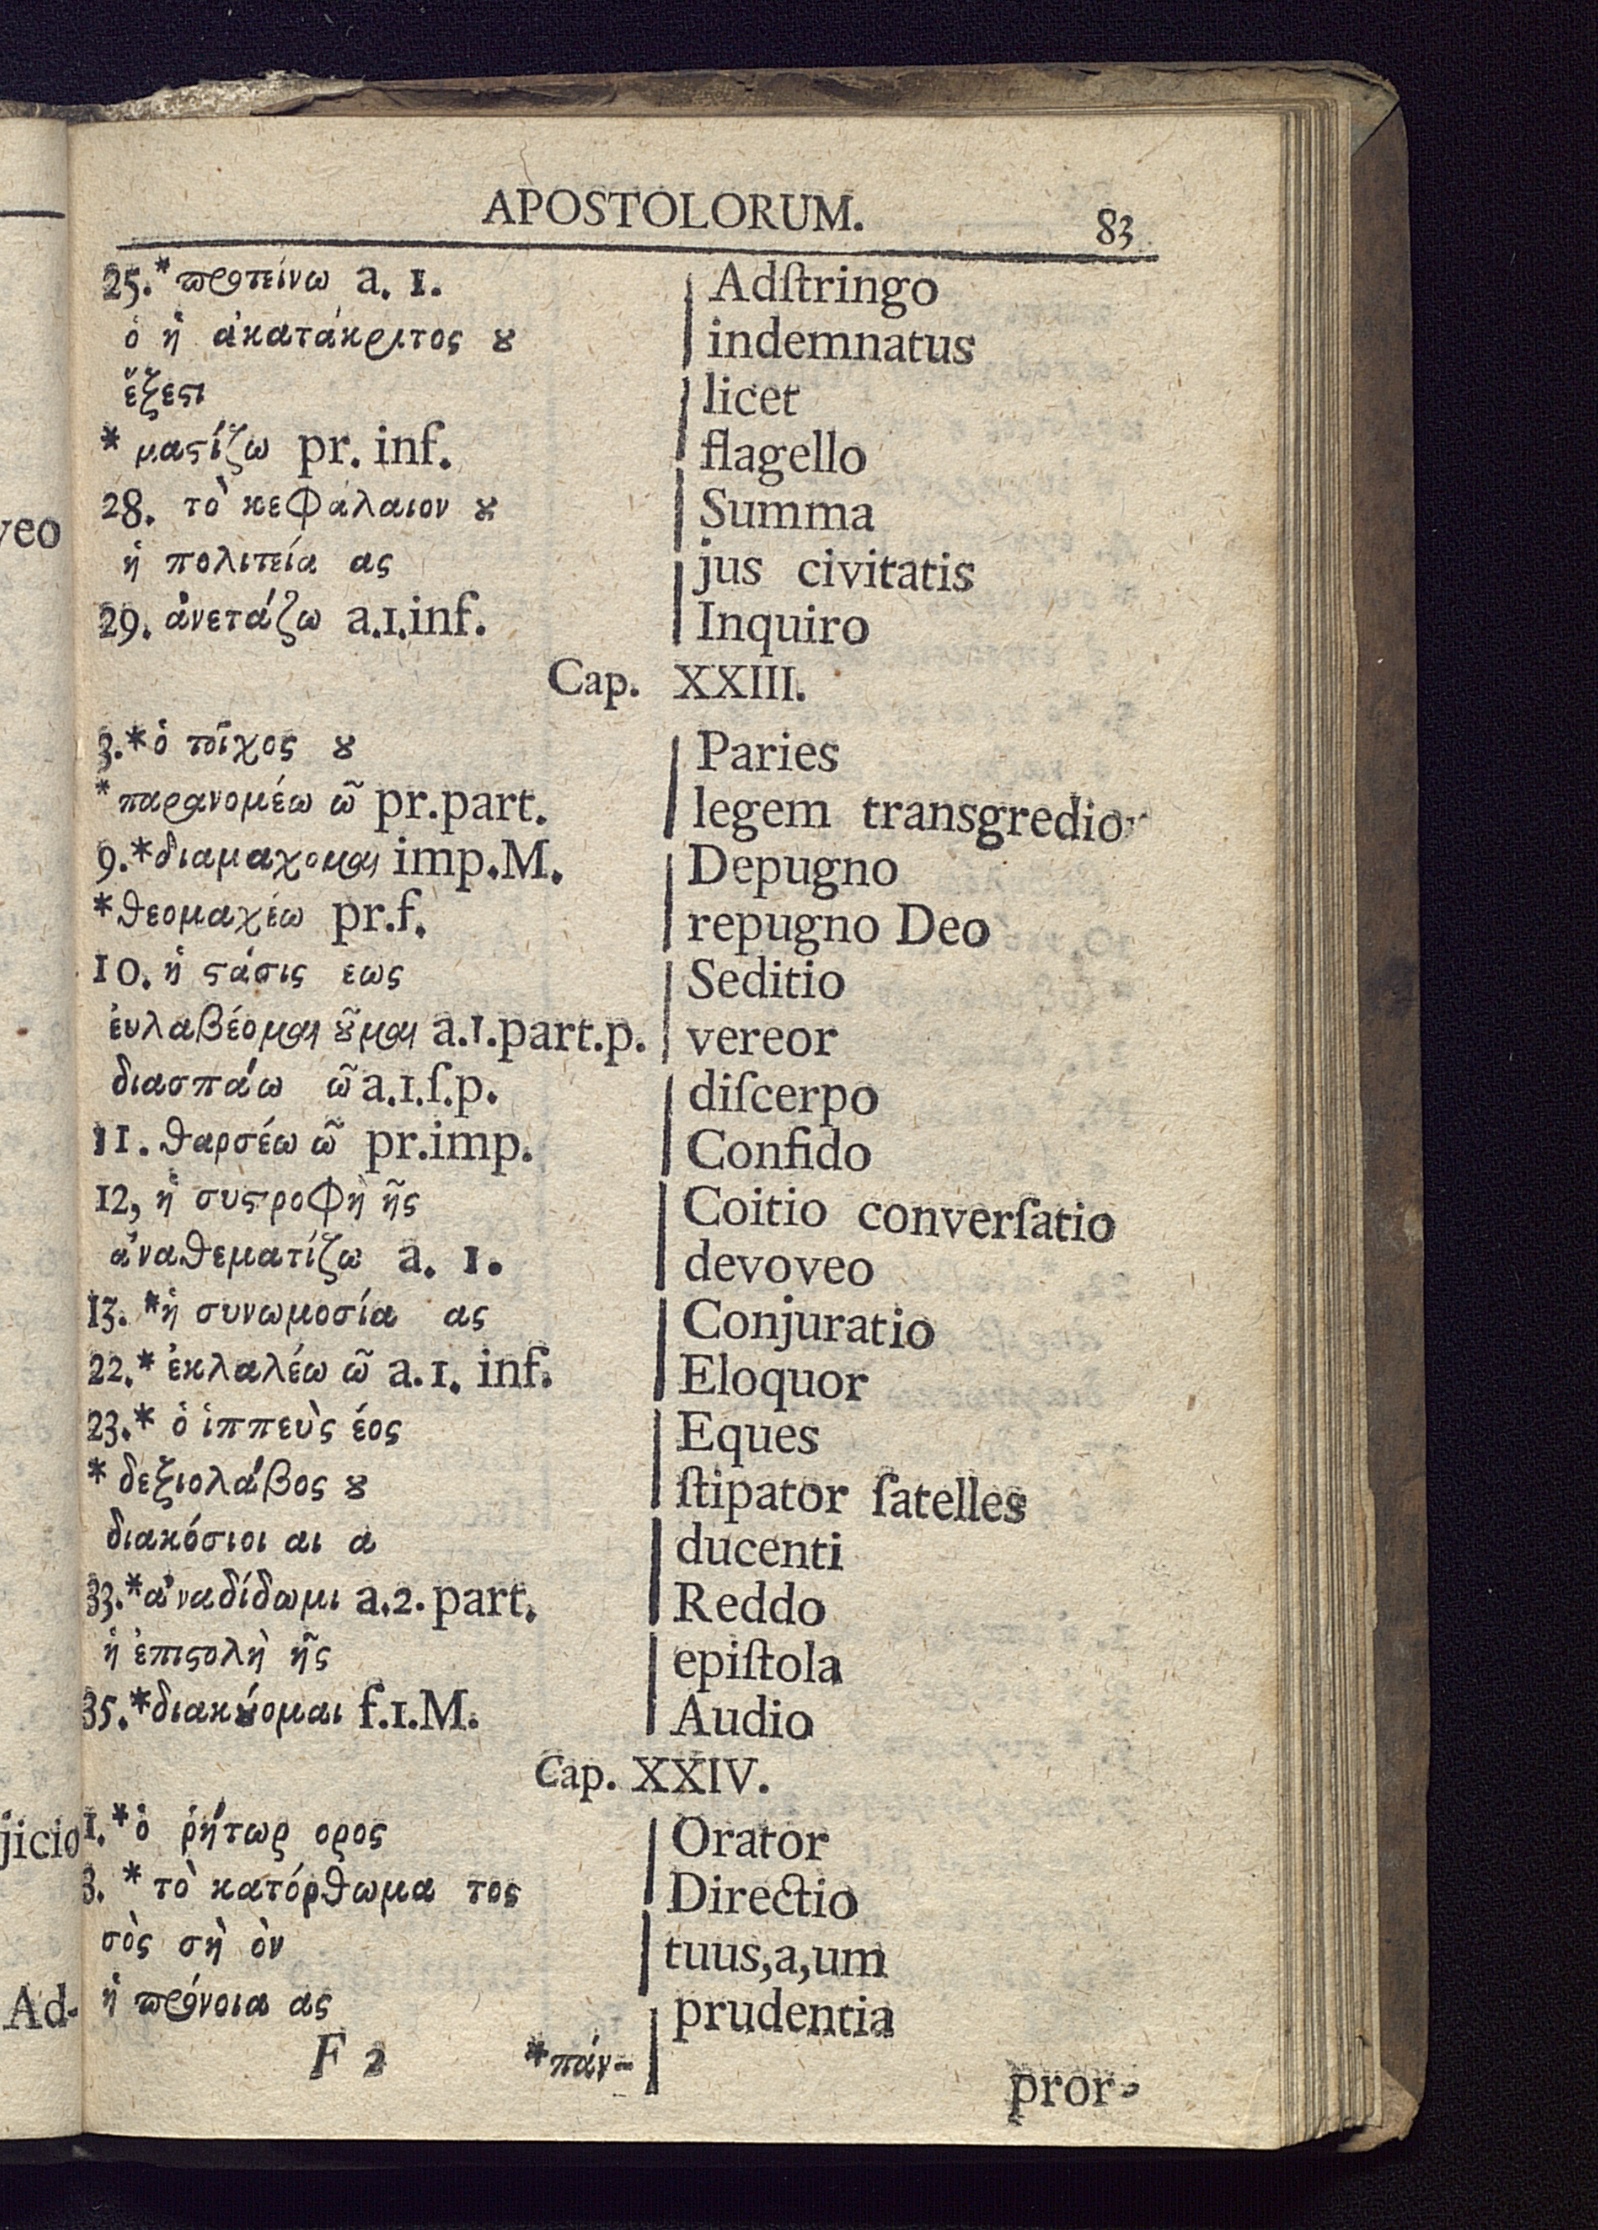 APOSTOLORUM. 83
25.* προτείνω a. 1. Adſtringo
ὁ ἡ ἀκατάκριτος ȣ indemnatus
ἔξεϛι licet
* μαϛίζω pr. inf. flagello
28. τὸ κεφάλαιον ȣ Summa
ἡ πολιτεία ας jus civitatis
29. ἀνετάζω a.1.inf. Inquiro
Cap. XXIII.
3.*ὁ τοῖχος ȣ Paries
*παρανομέω ῶ pr.part. legem transgredior
9.*διαμαχομαι imp.M. Depugno
*θεομαχέω pr.f. repugno Deo
10. ἡ ϛάσις εως Seditio
ἐυλαβέομαι ȣ͂μαι a.1.part.p. vereor
διασπάω ῶ a.1.ſ.p. diſcerpo
11. θαρσέω ῶ pr.imp. Confido
12, ἡ συϛροφὴ ῆς Coitio converſatio
ἀναθεματίζω a. 1. devoveo
13. *ἡ συνωμοσία ας Conjuratio
22.* ἐκλαλέω ῶ a.1. inf. Eloquor
23.* ὁ ἱππεὺς έος Eques
* δεξιολάβος ȣ ſtipator ſatelles
διακόσιοι αι α ducenti
33.*ἀναδίδωμι a.2. part. Reddo
ἡ ἐπιϛολὴ ῆς epiſtola
35.*διακȣ́ομαι f.1.M. Audio
Cap. XXIV.
1.*ὁ ῥήτωρ ορος Orator
3. * τὸ κατόρθωμα τος Directio
σὸς σὴ ὸν tuus,a,um
ἡ πρόνοια ας prudentia
F 2 *πάν- pror-
veo
jicio
Ad-